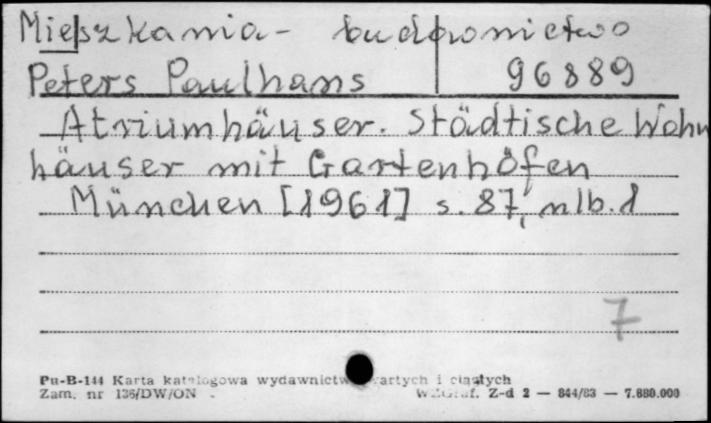 Mieszkania - budownictwo
Peters Paulhans 96889
Atriumhäuser. Städtische Wohn
häuser mit Gartenhöfen
München [1961] s. 87, nlb. 1
7
Pu-B-144 Karta katalogowa wydawnictw zwartych i ciągłych
Zam. nr 136/DW/ON WZGraf. Z-d 2 — 844/83 — 7.880.000